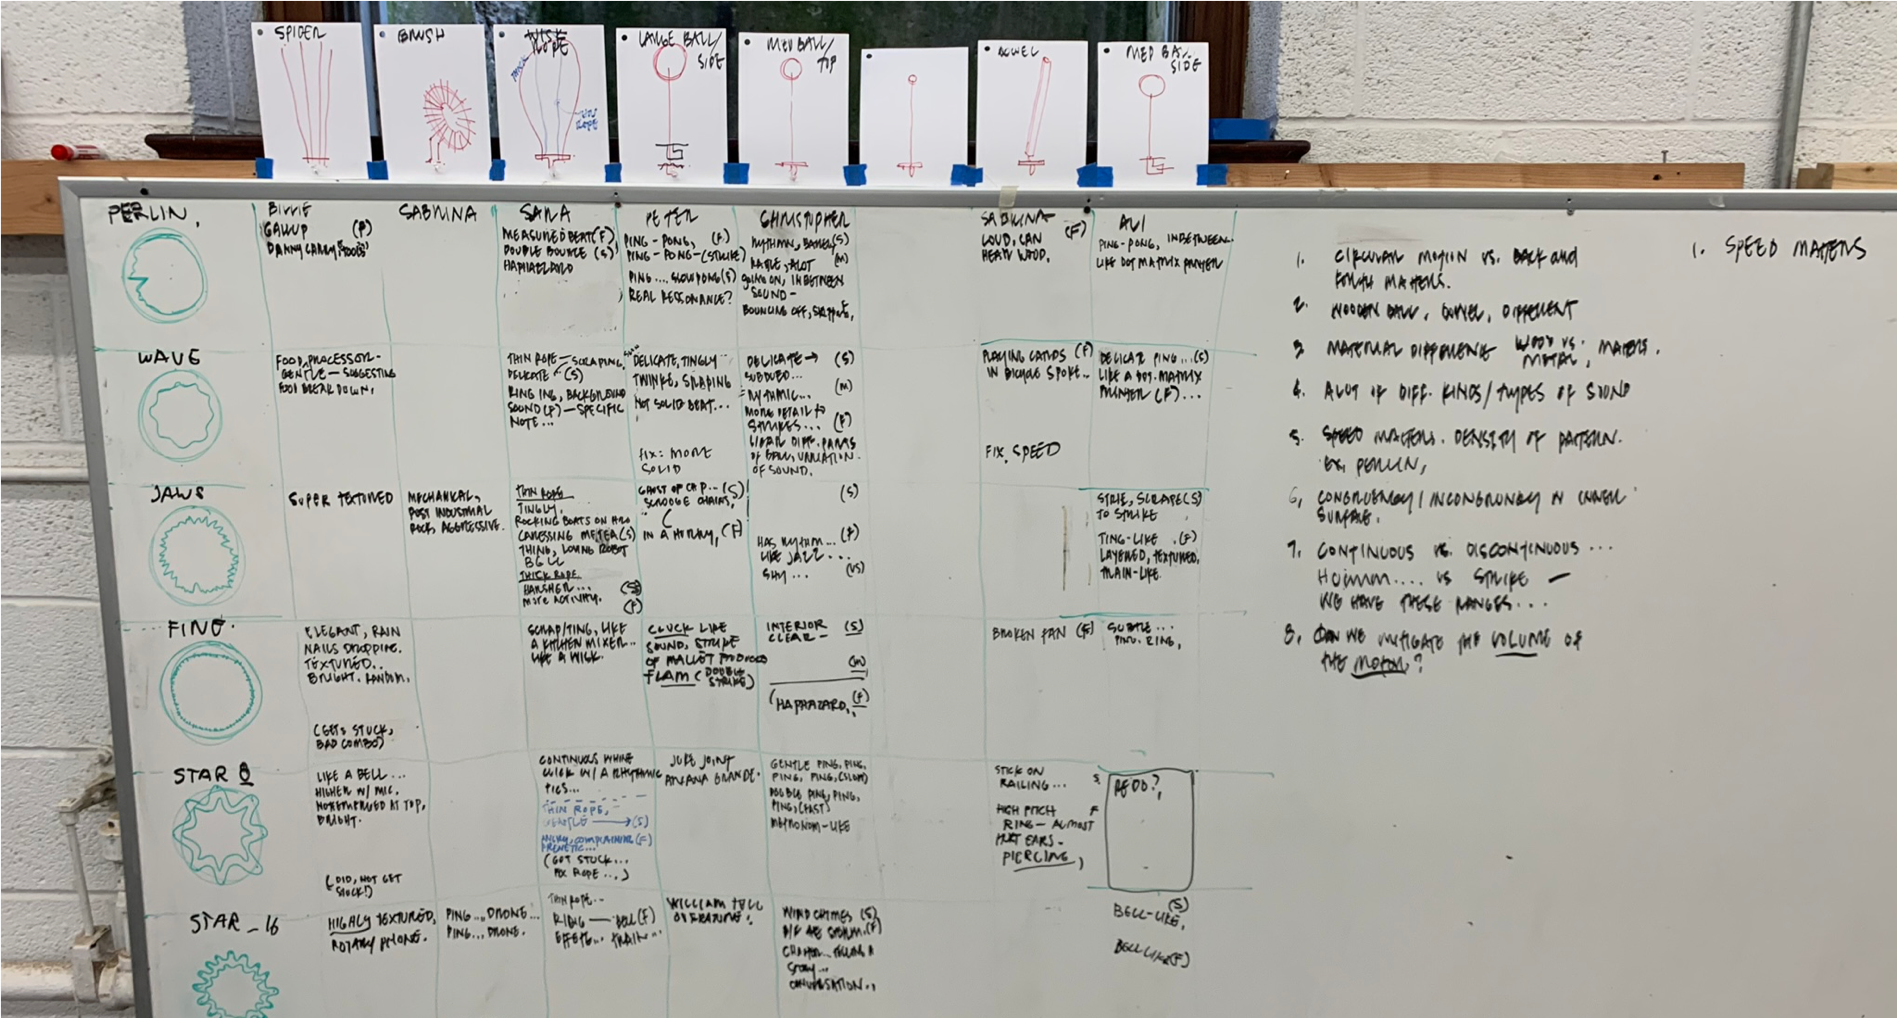 SPIDER
BRUSH
ROPE
LARGE BALL/
SIDE
MED BALL/
TOP
DOWEL
MED BA
SIDE
THIN
ROPE
PERLIN,
BILLIE
GALLUP (F)
DANNY CAREY
SABRINA
SARA
MEASURED BEAT (F)
DOUBLE BOUNCE (S)
HAPHAZARD
PETER
PING-PONG, (F)
PING-PONG-(STRIKE)
PING.... SLOW PONG (S)
REAL RESSONANCE?
CHRISTOPHER
(S)
(M)
GOING ON, INBETWEEN
SOUND-
BOUNCING OFF,
SABRINA
LOUD, CAN (F)
HEAR WOOD.
ALI
PING-PONG, INBETWEEN.
LIKE DOT MATRIX PRINTER
WAVE
FOOD PROCESSOR-
GENTLE - SUGGESTING
FOOD BREAK DOWN,
THIN ROPE - SCRAPING.
DELICATE - (S)
RING ING, BACKGROUND
SOUND (F) - SPECIFIC
NOTE...
DELICATE, TINGLY
TWINKE, SCRAPING
NOT SOLID BEAT...
FIX: MORE
SOLID
DELICATE → (S)
SUBDUED...
(M)
RYTHMIC...
MORE DETAIL TO
STRIKES... (F)
HEAR DIFF. PARTS
OF BALL, VARIATION
OF SOUND.
PLAYING CARDS (F)
IN BICYCLE SPOKE...
FIX. SPEED
DELICATE PING...(S)
LIKE A DOT-MATRIX
PRINTER (F)...
JAWS
SUPER TEXTURED
MECHANICAL,
POST INDUSTRIAL
ROCK, AGGRESSIVE.
THIN ROPE
TINGLY.
ROCKING BOATS ON H2O
CARESSING METER (S)
THING, LOVING ROBOT
BELL
THICK ROPE
HARSHER... (S)
MORE ACTIVITY. (F)
GHOST OF (S)
SCROOGE CHAINS,
IN A HURRY, (F)
(S)
HAS RYTHM... (F)
LIKE JAZZ....
SHY... (VS)
SCRAPE (S)
TO STRIKE
TING-LIKE .(F)
LAYERED, TEXTURED,
TRAIN-LIKE.
FINE.
ELEGANT, RAIN
NAILS DROPPING.
TEXTURED..
BRIGHT. RANDOM.
(GETS STUCK,
BAD COMBO)
SCRAP/TING, LIKE
A KITCHEN MIXER...
LIKE A
CLUCK LIKE
SOUND, STRIKE
OF MALLET PRODUCED
FLAM (DOUBLE
STRIKE)
INTERIOR (S)
CLEAR -
(M)
(HAPHAZARD, (F)
BROKEN FAN (F)
SUBTLE...
PING. RING,
STAR 8
LIKE A BELL...
HIGHER W/ MIC.
AT TOP,
BRIGHT.
(DID, NOT GET
STUCK!)
CONTINUOUS WHIRL
CLICK W/ A RHYTHMIC
THIN ROPE,
GENTLE → (S)
ANGRY, COMPLAINING (F)
FRENETIC...
(GOT STUCK...
FIX ROPE...)
JUKE JOINT
ARIANA GRANDE.
GENTLE PING, PING,
PING, PING, (SLOW)
DOUBLE PING, PING,
PING, (FAST)
METRONOM-LIKE
STICK ON
RAILING... S
HIGH PITCH F
RING - ALMOST
HURT EARS-
PIERCING,
REDO?,
STAR_16
HIGHLY TEXTURED,
ROTARY PHONE.
PING... DRONE...
PING... DRONE.
THIN ROPE..
RING - BELL (F)
EFFECTS... TRAIN...
WILLIAM TELL
OVERTURE!
WIND CHIMES (S)
STORM. (F)
TELLING A
STORY...
CONVERSATION..
(S)
BELL-LIKE,
BELL LIKE (F)
1. CIRCULAR MOTION VS. BACK and
FORTH MATTERS.
2. WOODEN BALL, DOWEL, DIFFERENT
3 MATERIAL DIFFERENCE WOOD VS. METAL, MATERS.
4. ALOT OF DIFF. KINDS/TYPES OF SOUND
5. SPEED MATTERS. DENSITY OF PATTERN.
EX, PERLIN,
6, CONGRUENCY/INCONGRUNCY IN INNER
SURFACE.
7, CONTINUOUS VS. DISCONTINUOUS...
Hummm.... VS STRIKE -
WE HAVE THESE RANGES...
8, CAN WE MITIGATE THE VOLUME OF
THE MOTOR?
1. SPEED MATTERS